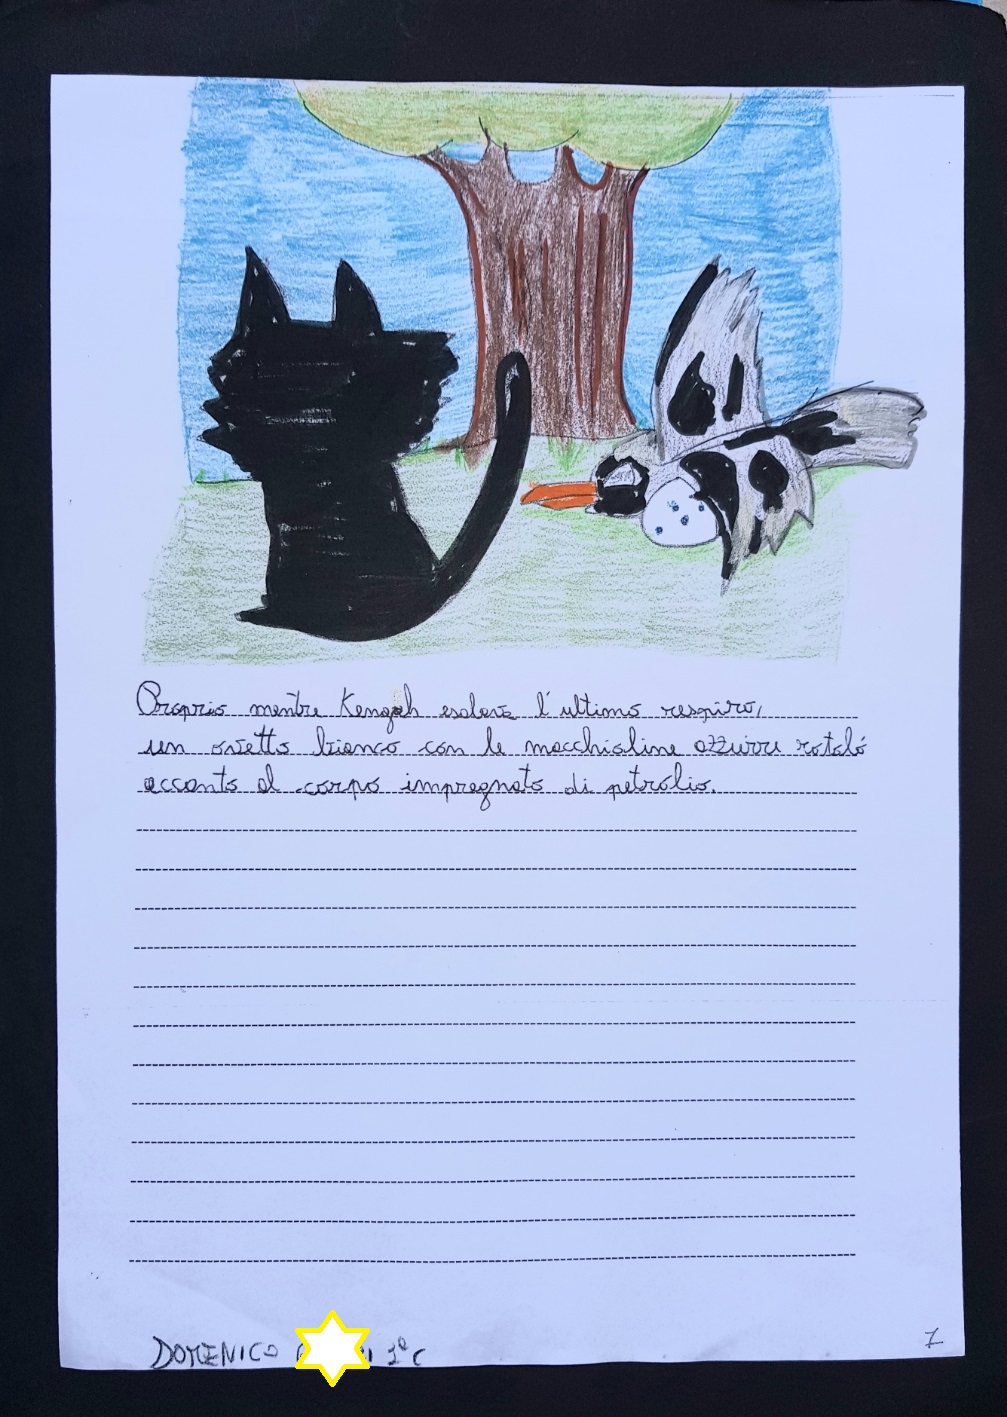 Proprio mentre Kengah esalava l'ultimo respiro,
un ovetto bianco con le macchioline azzurre rotolò
accanto al corpo impregnato di petrolio.
DOMENICO 1°C
1